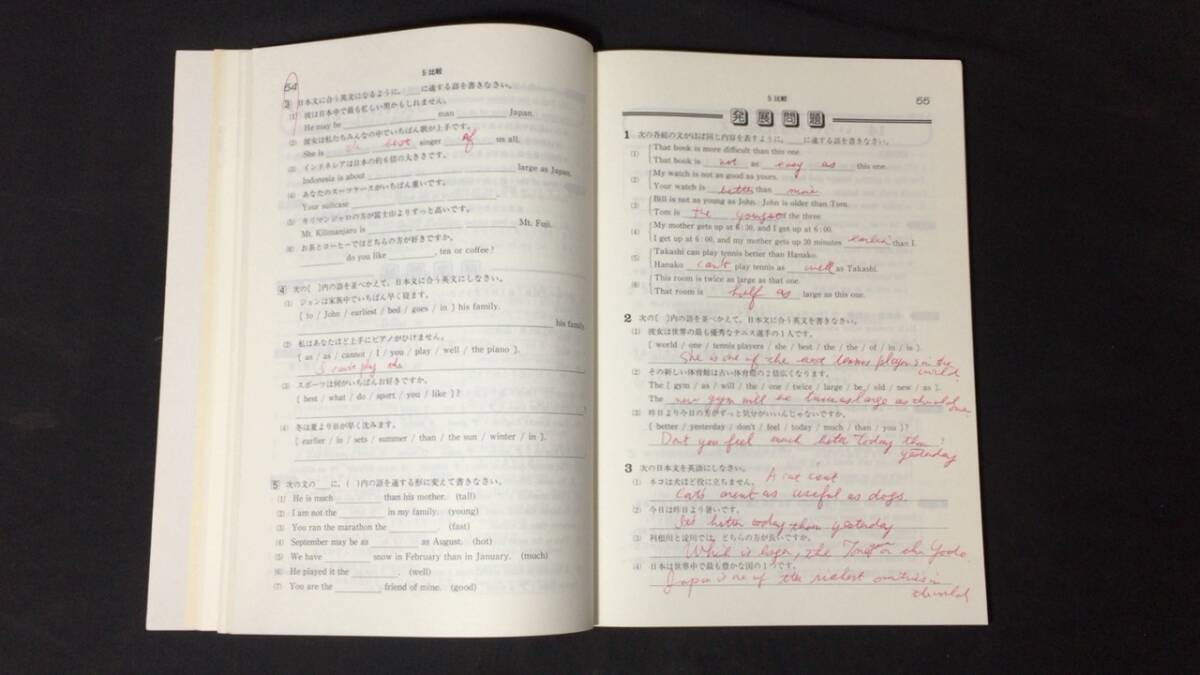 54
5 比較
3 日本文に合う英文になるように, ＿に適する語を書きなさい。
(1) 彼は日本中で最も忙しい男かもしれません。
He may be ＿ man ＿ Japan.
(2) 彼女は私たちみんなの中でいちばん歌が上手です。
She is the best singer of us all.
(3) インドネシアは日本の約6倍の大きさです。
Indonesia is about ＿ large as Japan.
(4) あなたのスーツケースがいちばん重いです。
Your suitcase ＿.
(5) キリマンジャロの方が富士山よりずっと高いです。
Mt. Kilimanjaro is ＿ ＿ ＿ Mt. Fuji.
(6) お茶とコーヒーではどちらの方が好きですか。
＿ do you like ＿, tea or coffee?
4 次の[ ]内の語を並べかえて, 日本文に合う英文にしなさい。
(1) ジョンは家族中でいちばん早く寝ます。
[ to / John / earliest / bed / goes / in ] his family.
his family.
(2) 私はあなたほど上手にピアノがひけません。
[ as / as / cannot / I / you / play / well / the piano ].
I can't play the
(3) スポーツは何がいちばんお好きですか。
[ best / what / do / sport / you / like ]?
(4) 冬は夏より日が早く沈みます。
[ earlier / in / sets / summer / than / the sun / winter / in ].
5 次の文の＿に, ( )内の語を適する形に変えて書きなさい。
(1) He is much ＿ than his mother. (tall)
(2) I am not the ＿ in my family. (young)
(3) You ran the marathon the ＿. (fast)
(4) September may be as ＿ as August. (hot)
(5) We have ＿ snow in February than in January. (much)
(6) He played it the ＿. (well)
(7) You are the ＿ friend of mine. (good)
5 比較
55
発展問題
1 次の各組の文がほぼ同じ内容を表すように, ＿に適する語を書きなさい。
(1) That book is more difficult than this one.
That book is not as easy as this one.
(2) My watch is not as good as yours.
Your watch is better than mine
(3) Bill is not as young as John. John is older than Tom.
Tom is the youngest of the three
(4) My mother gets up at 6:30, and I get up at 6:00.
I get up at 6:00, and my mother gets up 30 minutes earlier than I.
(5) Takashi can play tennis better than Hanako.
Hanako can't play tennis as well as Takashi.
(6) This room is twice as large as that one.
That room is half as large as this one.
2 次の[ ]内の語を並べかえて, 日本文に合う英文を書きなさい。
(1) 彼女は世界の最も優秀なテニス選手の1人です。
[ world / one / tennis players / she / best / the / the / of / in / is ].
She is one of the tennis players in the
world.
(2) その新しい体育館は古い体育館の2倍広くなります。
The [ gym / as / will / the / one / twice / large / be / old / new / as ].
The new gym will be twice as large as the old
one
(3) 昨日より今日の方がずっと気分がいいんじゃないですか。
[ better / yesterday / don't / feel / today / much / than / you ]?
Don't you feel much better today than
yesterday ?
3 次の日本文を英語にしなさい。
(1) ネコは犬ほど役に立ちません。
Cats aren't as useful as dogs.
(2) 今日は昨日より暑いです。
It's hotter today than yesterday
(3) 利根川と淀川では, どちらの方が長いですか。
the Tone or the Yodo
(4) 日本は世界中で最も豊かな国の1つです。
Japan is one of the richest countries in
the world